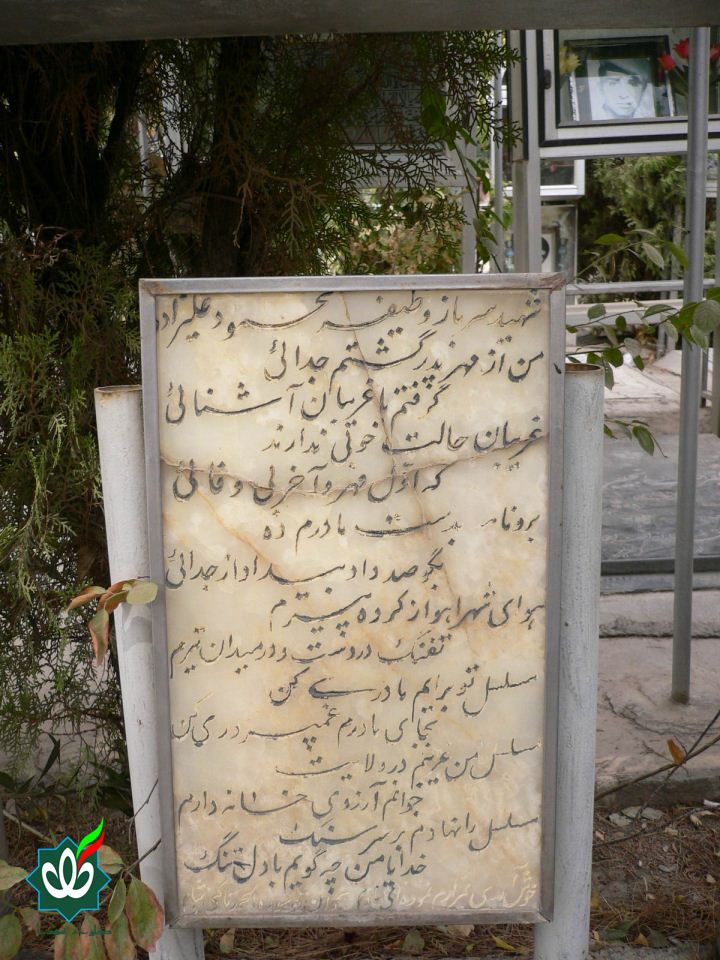 شهید سرباز وظیفه محمود علیزاده
من از مهر پدر گشتم جدائی
گرفتم با غریبان آشنائی
غریبان حالت خوبی ندارند
که اول مهر و آخر بی وفائی
برو نامه بدست مادرم ده
بگو صد داد بیداد از جدائی
هوای شهر اهواز کرده پیرم
تفنگ در دست و در میدان تیرم
مسلسل تو برایم مادری کن
بجای مادرم غمپروری کن
مسلسل من غریبم در ولایت
جوانم آرزوی خانه دارم
مسلسل را نهادم بر سر سنگ
خدایا من چه گویم با دل تنگ